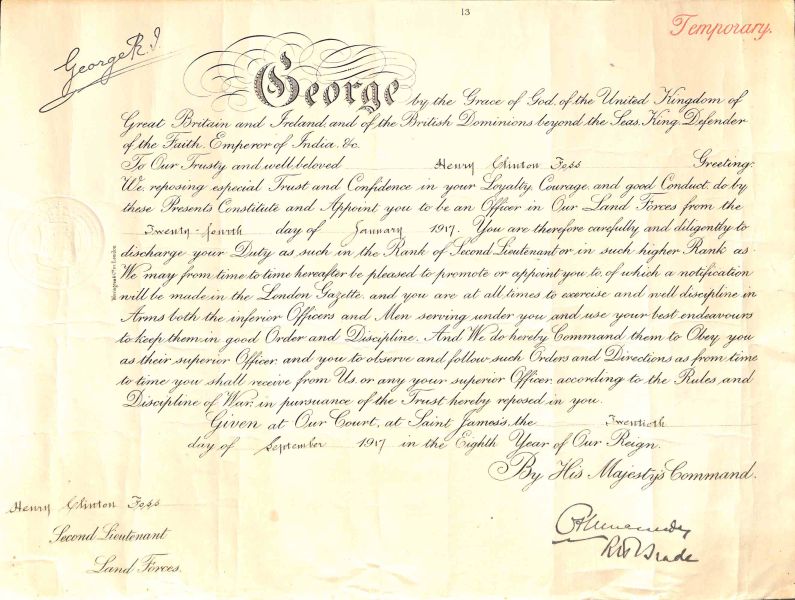 13
Temporary.
George R.I.
George by the Grace of God, of the United Kingdom of
Great Britain and Ireland, and of the British Dominions beyond the Seas, King, Defender
of the Faith, Emperor of India, &c.
To Our Trusty and well beloved Henry Clinton Foss Greeting:
We, reposing especial Trust and Confidence in your Loyalty, Courage, and good Conduct, do by
these Presents Constitute and Appoint you to be an Officer in Our Land Forces from the
Twenty-fourth day of January 1917. You are therefore carefully and diligently to
discharge your Duty as such in the Rank of Second Lieutenant or in such higher Rank as
We may from time to time hereafter be pleased to promote or appoint you to, of which a notification
will be made in the London Gazette, and you are at all times to exercise and well discipline in
Arms both the inferior Officers and Men serving under you and use your best endeavours
to keep them in good Order and Discipline. And We do hereby Command them to Obey you
as their superior Officer, and you to observe and follow such Orders and Directions as from time
to time you shall receive from Us, or any your superior Officer, according to the Rules and
Discipline of War, in pursuance of the Trust hereby reposed in you.
Given at Our Court, at Saint James's, the Twentieth
day of September 1917 in the Eighth Year of Our Reign.
By His Majesty's Command.
Henry Clinton Foss
Second Lieutenant
Land Forces.
R H Brade